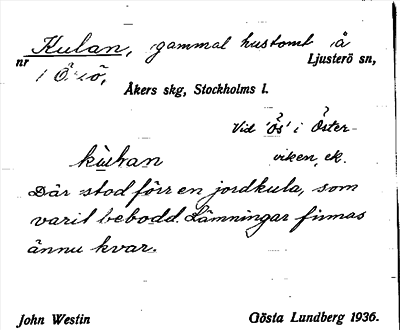 Kulan, gammal hustomt å
nr Ljusterö sn,
Åkers skg, Stockholms l.
Vid 'Ös' i Öster-
kùlan viken, ek.
Där stod förr en jordkula, som
varit bebodd. Lämningar finnas
ännu kvar.
John Westin Gösta Lundberg 1936.